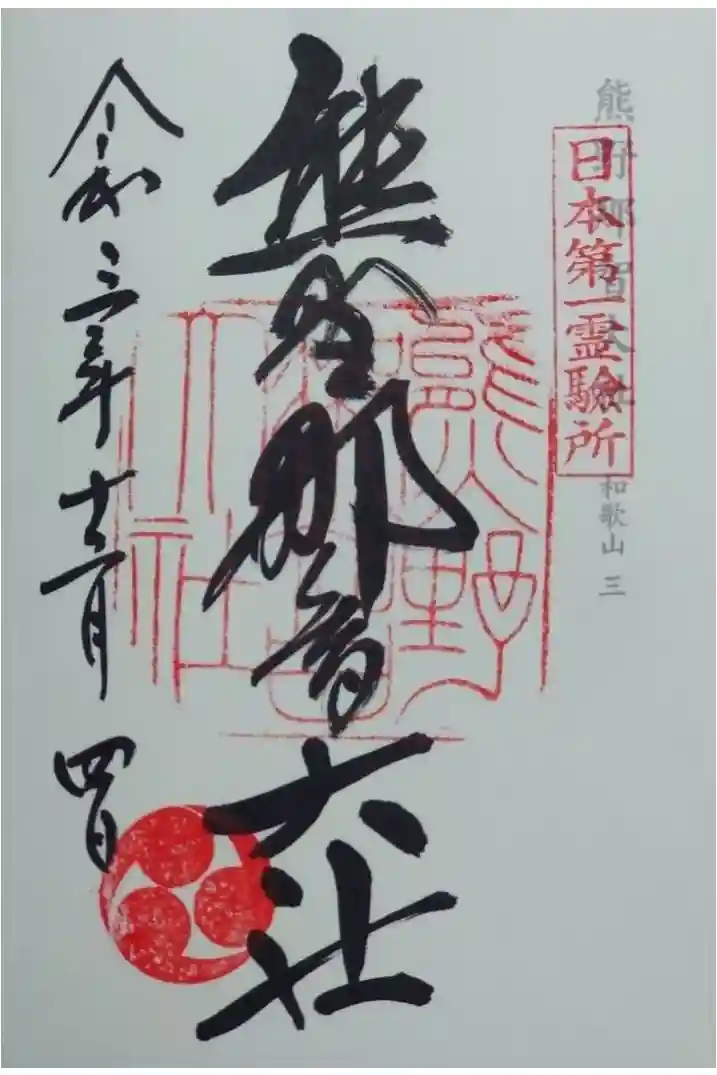 熊野那智大社 和歌山 三
日本第一霊験所
熊野那智大社
熊野那智大社
令和三年十二月四日